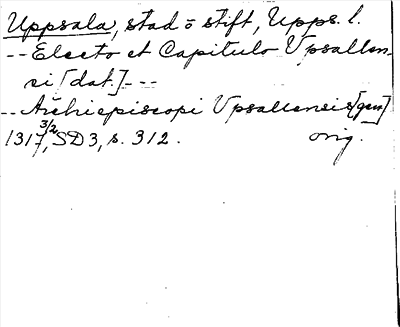 Uppsala, stad o stift, Upps. l.
-- Electo et Capitulo Vpsallen-
ci [dat.] ---
-- Archiepiscopi Vpsallensis [gen]
1317 3/2, SD3, s. 312. orig.